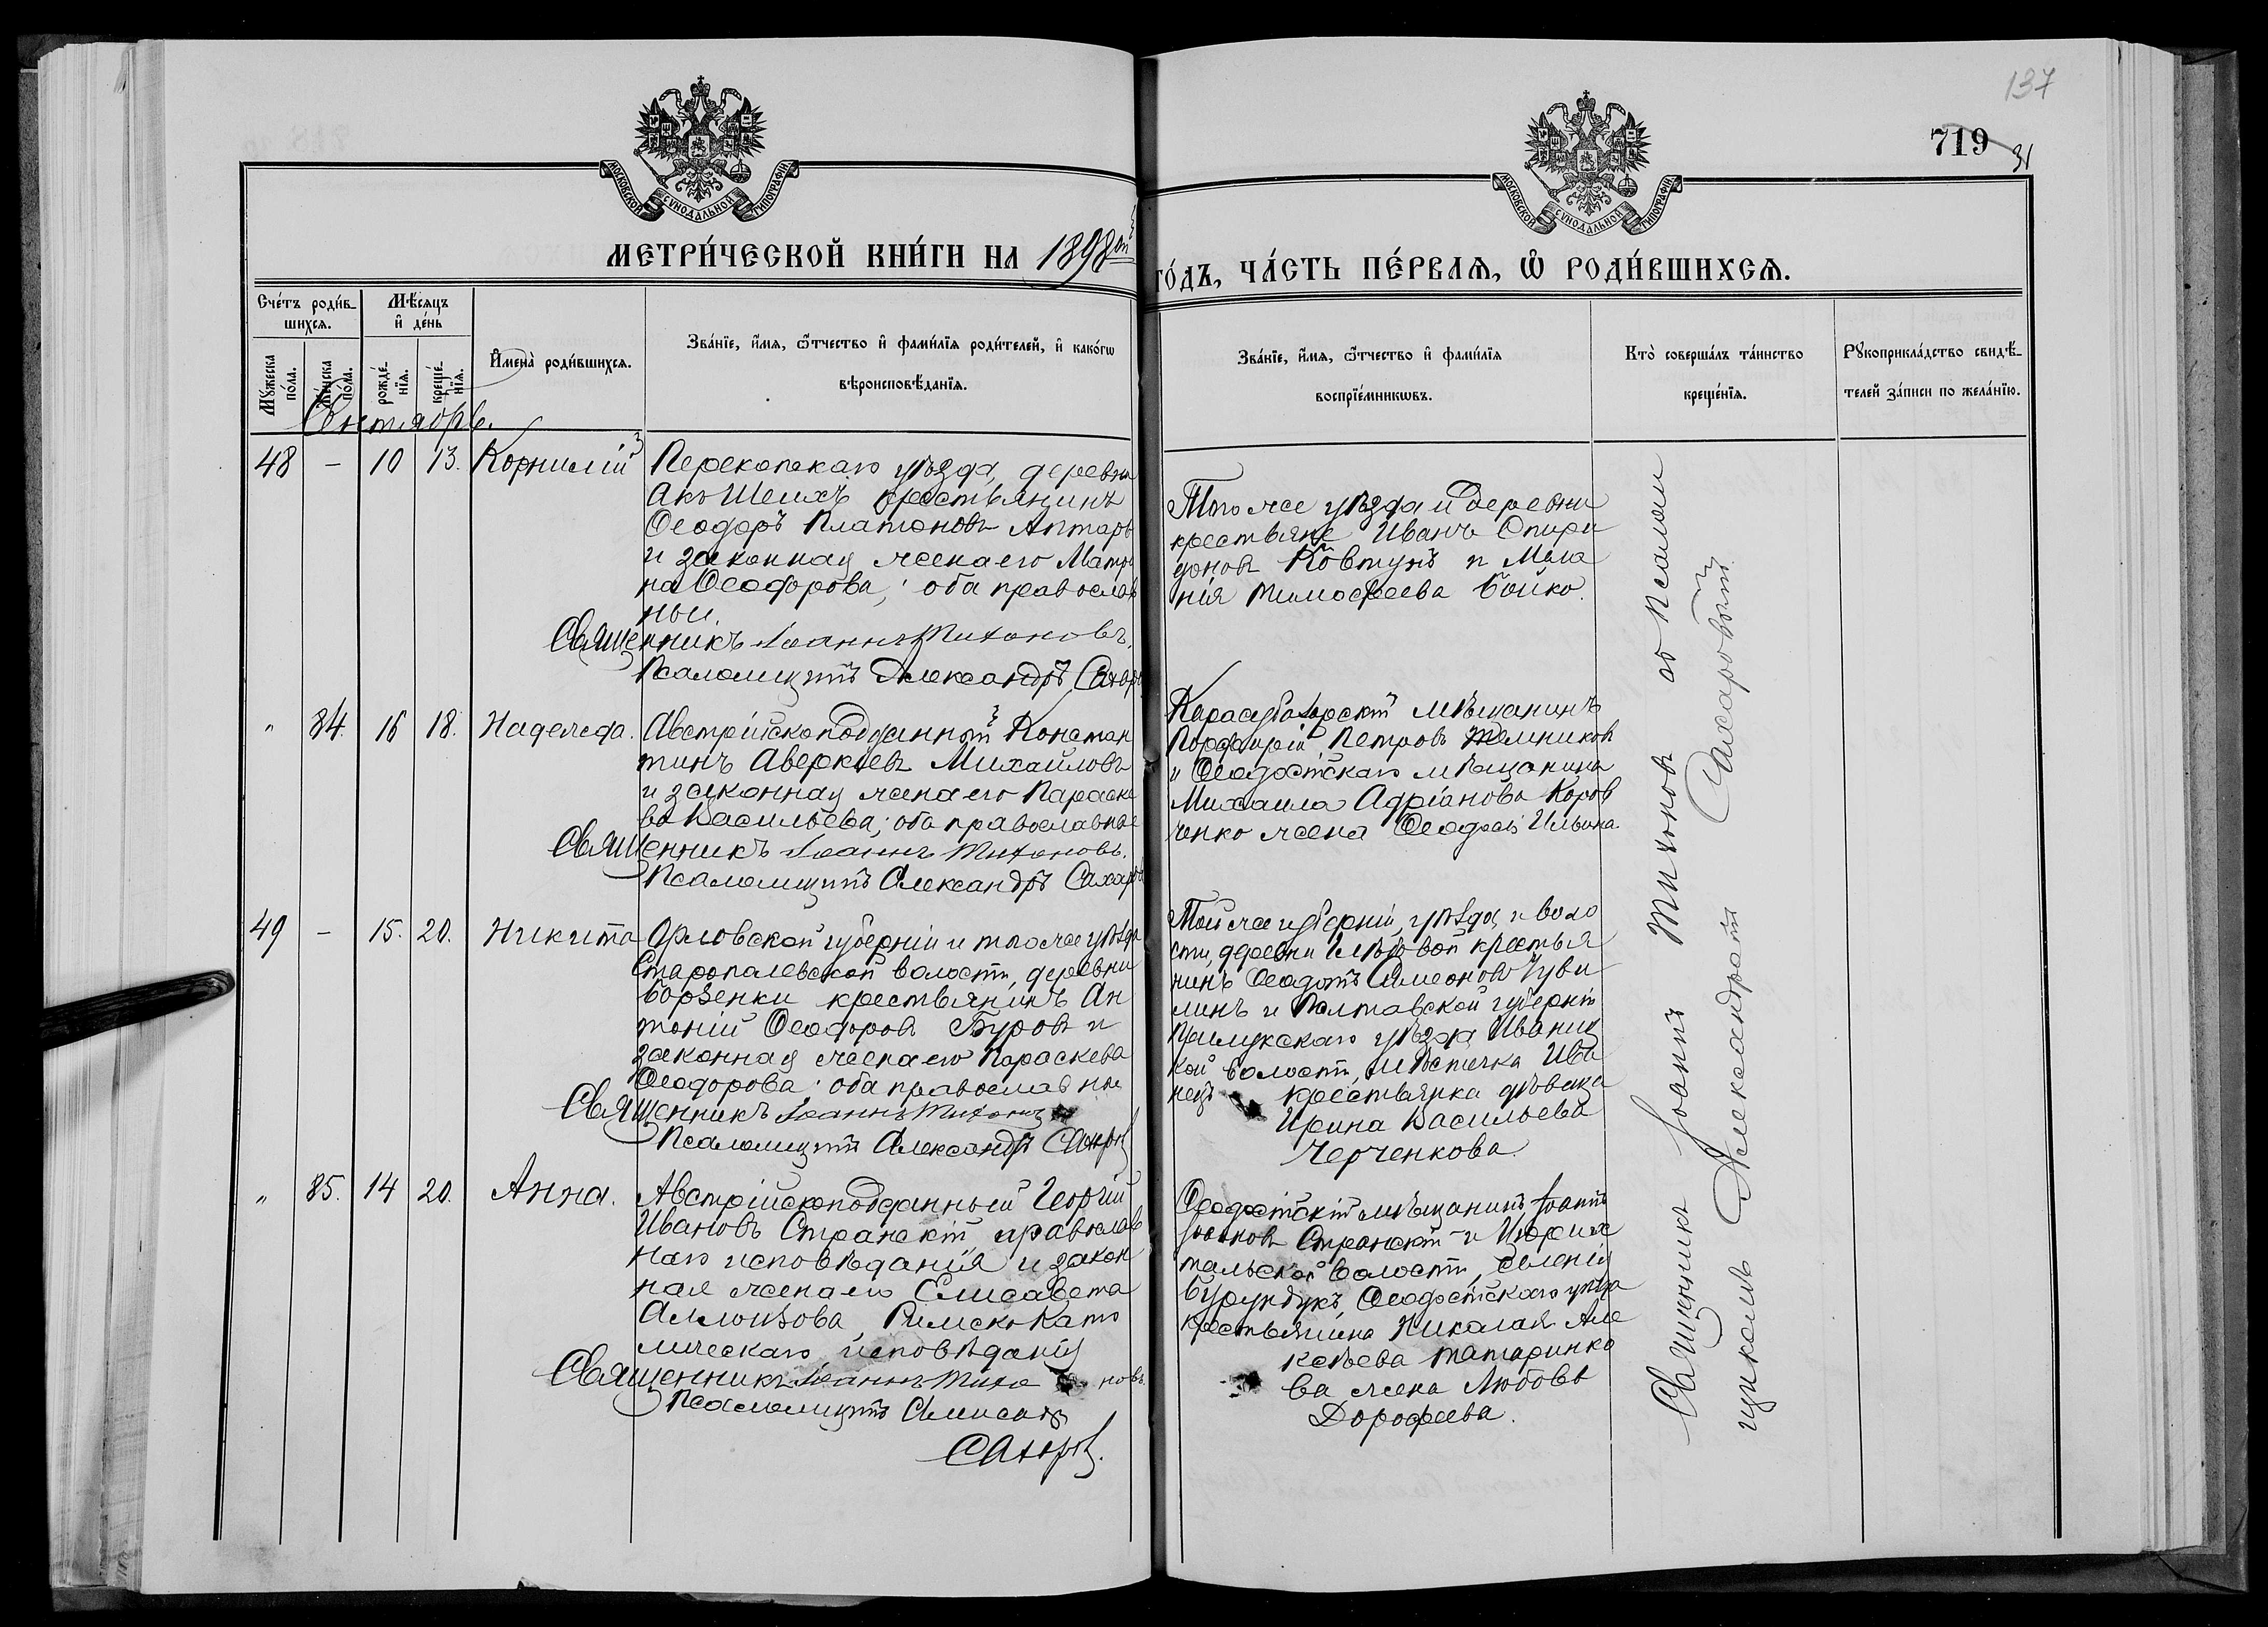 137
719
31
МОСКОВСКОЙ СѴНОДАЛЬНОЙ ТИПОГРАФІИ
МОСКОВСКОЙ СѴНОДАЛЬНОЙ ТИПОГРАФІИ
МЕТРИ́ЧЕСКОЙ КНИ́ГИ НА 1898
ГО́ДЪ, ЧА́СТЬ ПЕ́РВАѦ, Ѽ РОДИ́ВШИХСѦ.
Сче́тъ роди́в-
шихсѧ.
Мѣ́сѧцъ
и҆ де́нь
Мꙋ́жеска
по́ла.
Же́нска
по́ла.
рожде́-
нїѧ.
креще́-
нїѧ.
И҆мена̀ роди́вшихсѧ.
Зва́нїе, и҆́мѧ, ѻ҆́тчество и҆ фами́лїѧ роди́телей, и҆ како́гѡ
вѣроисповѣ́данїѧ.
Зва́нїе, и҆́мѧ, ѻ҆́тчество и҆ фами́лїѧ
воспрїе́мникѡвъ.
Кто̀ соверша́лъ та́инство
креще́нїѧ.
Рꙋкоприкла́дство свидѣ́-
телей за́писи по жела́нїю.
Сентябрь.
48 – 10 13. Корнилій
Перекопскаго уѣзда, деревни
Акъ Шеихъ крестьянинъ
Ѳеодоръ Платоновъ Аптарь
и законная жена его Матро
на Ѳеодорова; оба православ
ные.
Священникъ Іоаннъ Тихоновъ.
Псаломщикъ Александръ Сахаро
Того же уѣзда и деревни
крестьяне Иванъ Спири
доновъ Ковтунъ и Мела
нія Тимоѳеева Бойко.
" 84. 16 18. Надежда.
Австрійскоподданный Констан
тинъ Аверкіевъ Михайловъ
и законная жена его Параске
ва Васильева; оба православные
Священникъ Іоаннъ Тихоновъ.
Псаломщикъ Александръ Сахаро
Карасубазарскій мѣщанинъ
Порфирій Петровъ
и Ѳеодосійскаго мѣщанина
Михаила Адріанова Коров
ченко жена Ѳеодосія Ильина.
49 – 15. 20. Никита
Орловской губерніи и того же уѣзда
Старопалевской волости, деревни
Борзенки крестьянинъ Ан
тоній Ѳеодоровъ Буровъ и
законная жена его Параскева
Ѳеодорова; оба православные
Священникъ Іоаннъ Тихоновъ
Псаломщикъ Александръ Сахаровъ
Той же губерніи, уѣзда и воло
сти, деревни крестья
нинъ Ѳеодотъ Симеоновъ Чуви
линъ и Полтавской губерніи
Прилукскаго уѣзда Иваниц
кой волости, мѣстечка Ива
ницъ крестьянка дѣвица
Ирина Васильева
Черченкова.
" 85. 14 20. Анна.
Австрійскоподданный Георгій
Ивановъ Странскій православ
наго исповѣданія и закон
ная жена его Елисавета
Алоизова Римско Като
лическаго исповѣданія
Священникъ Іоаннъ Тихо новъ
Псаломщикъ Александръ
Сахаровъ.
Ѳеодосійскій мѣщанинъ Іоаннъ
Іоанновъ Странскій и Цюрих
тальской волости, селенія
Бурундукъ, Ѳеодосійскаго уѣзда
крестьянина Николая Але
ксѣева Татаринко
ва жена Любовь
Дороѳеева.
Священникъ Іоаннъ Тихоновъ съ псалом
щикомъ Александромъ Сахаровымъ